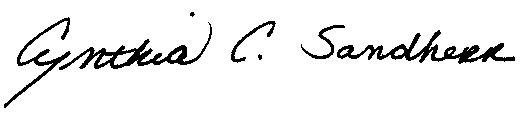 Cynthia C. Sandherr